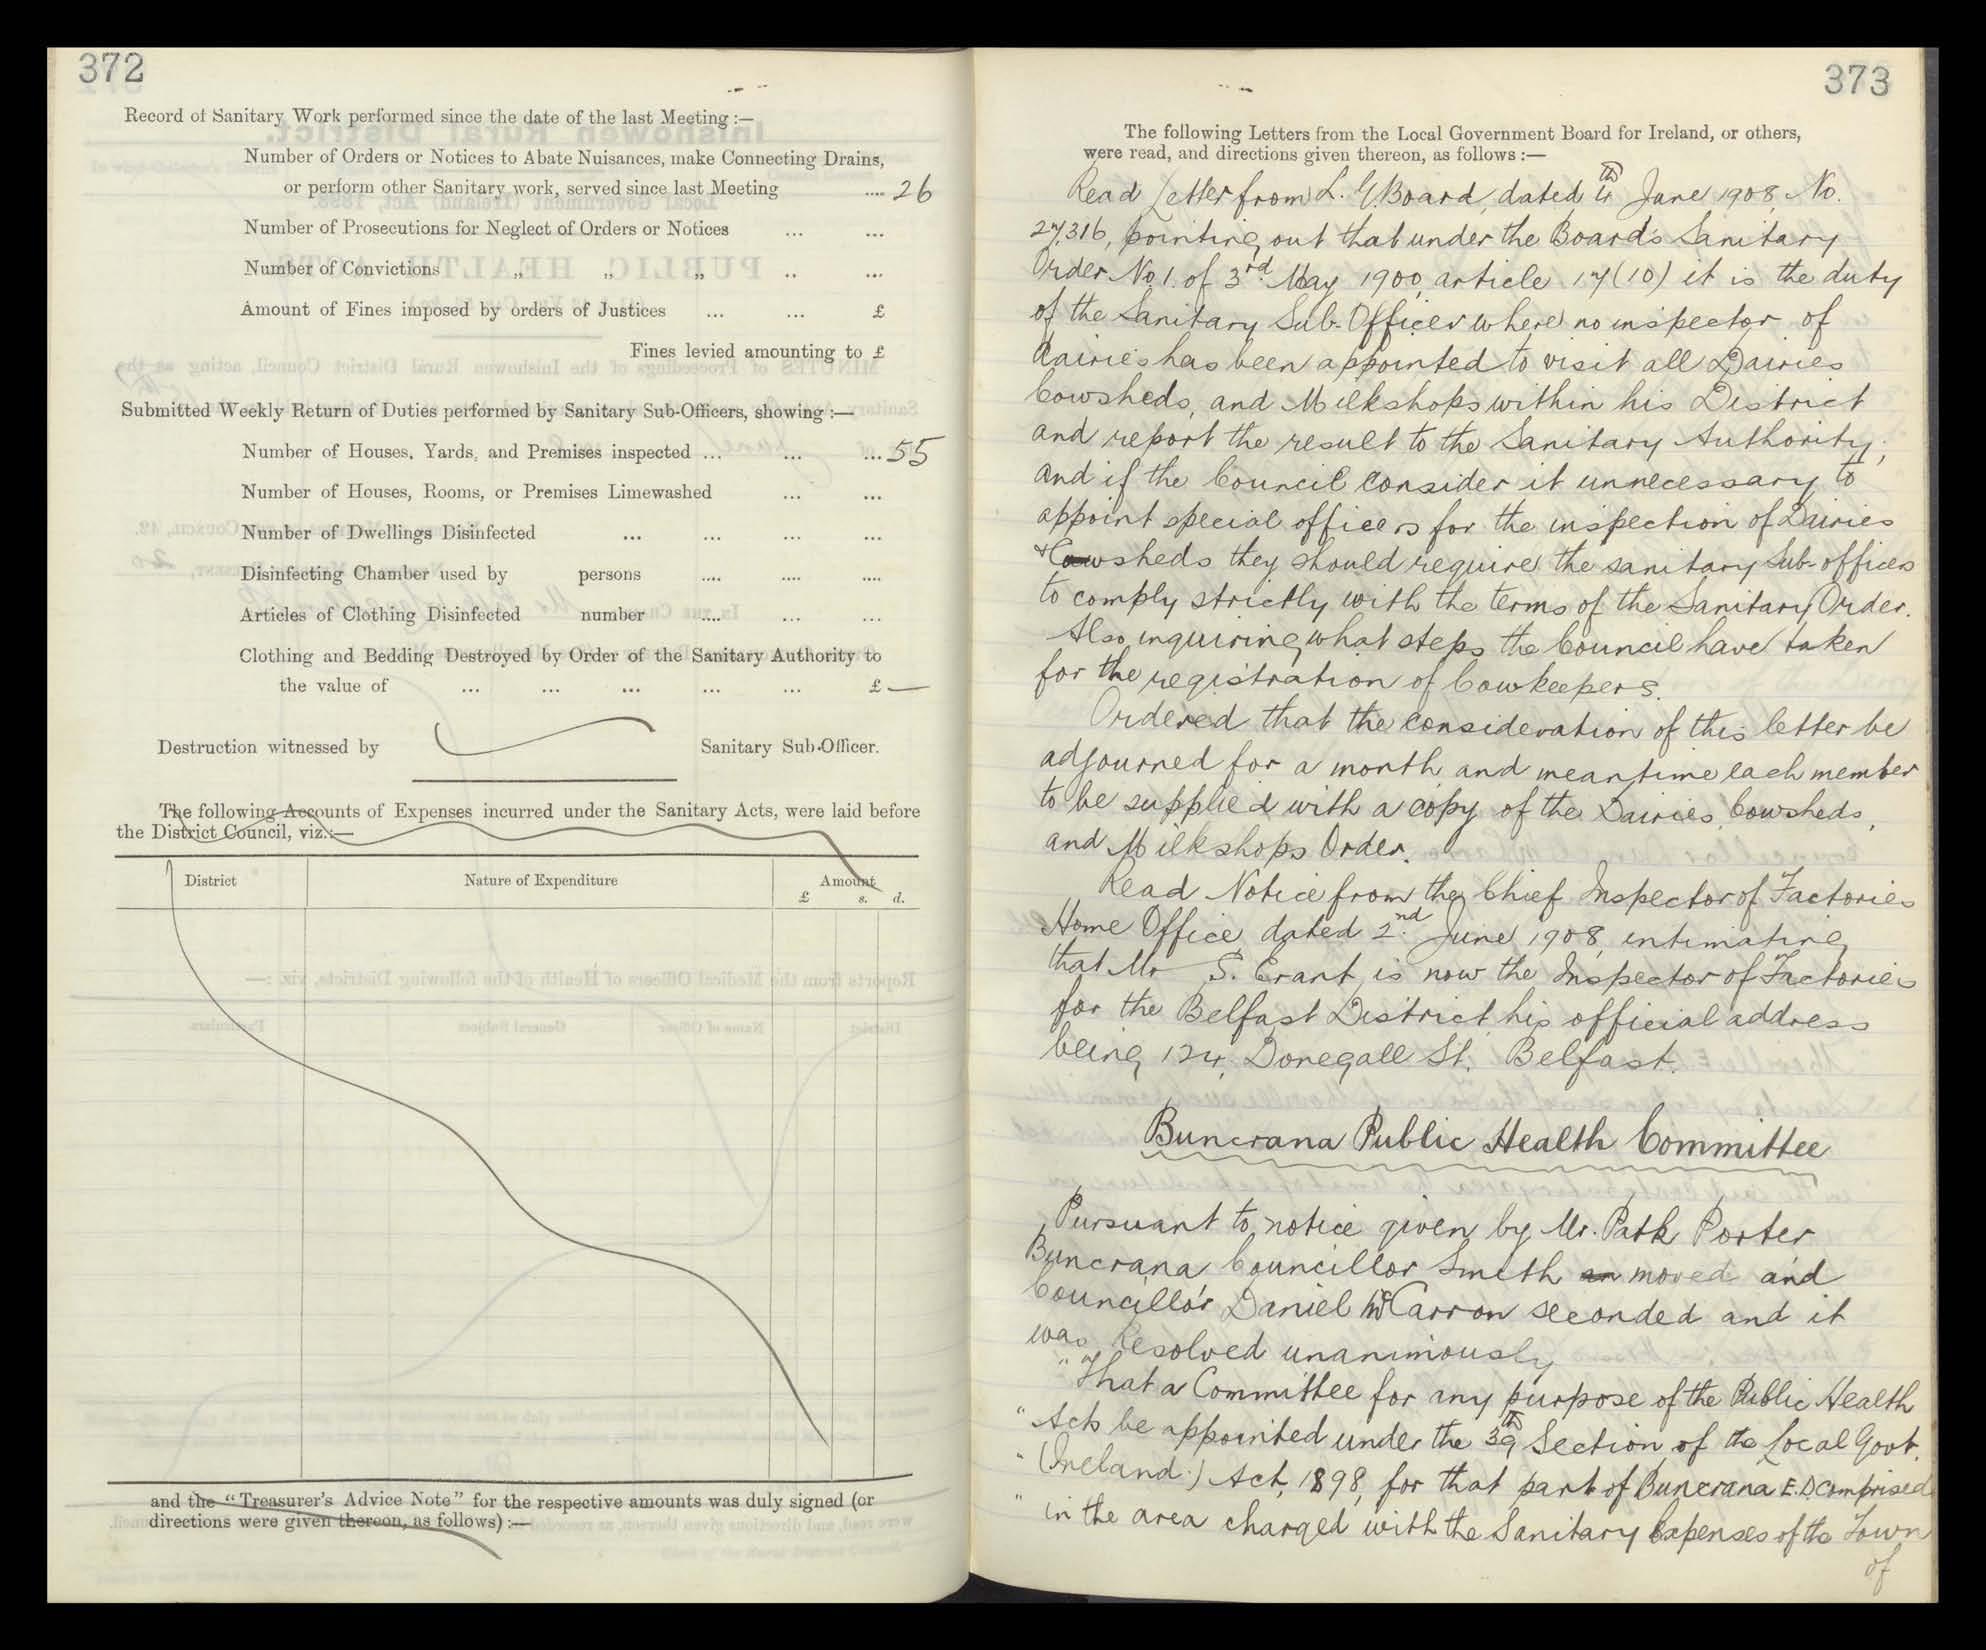 372
Record of Sanitary Work performed since the date of the last Meeting :—
Number of Orders or Notices to Abate Nuisances, make Connecting Drains,
or perform other Sanitary work, served since last Meeting .... 26
Number of Prosecutions for Neglect of Orders or Notices ... ...
Number of Convictions „ „ „ .. ...
Amount of Fines imposed by orders of Justices ... ... £
Fines levied amounting to £
Submitted Weekly Return of Duties performed by Sanitary Sub-Officers, showing :—
Number of Houses, Yards, and Premises inspected ... ... ... 55
Number of Houses, Rooms, or Premises Limewashed ... ...
Number of Dwellings Disinfected ... ... ... ...
Disinfecting Chamber used by persons .... .... ....
Articles of Clothing Disinfected number .... ... ...
Clothing and Bedding Destroyed by Order of the Sanitary Authority to
the value of ... ... ... ... ... £ —
Destruction witnessed by Sanitary Sub-Officer.
The following Accounts of Expenses incurred under the Sanitary Acts, were laid before
the District Council, viz.:—
District Nature of Expenditure Amount
£ s. d.
and the "Treasurer's Advice Note" for the respective amounts was duly signed (or
directions were given thereon, as follows) :—
373
The following Letters from the Local Government Board for Ireland, or others,
were read, and directions given thereon, as follows :—
Read Letter from L. G. Board, dated 4th June 1908, No.
27,316, pointing out that under the Board's Sanitary
Order No. 1. of 3rd. May 1900, article 17(10) it is the duty
of the Sanitary Sub-Officer where no inspector of
dairies has been appointed to visit all Dairies
Cowsheds, and Milkshops within his District
and report the result to the Sanitary Authority;
and if the Council consider it unnecessary to
appoint special officers for the inspection of Dairies
& Cowsheds they should require the sanitary Sub-officers
to comply strictly with the terms of the Sanitary Order.
Also inquiring what steps the Council have taken
for the registration of Cowkeepers.
Ordered that the consideration of this letter be
adjourned for a month and meantime each member
to be supplied with a copy of the Dairies, Cowsheds,
and Milkshops Order.
Read Notice from the Chief Inspector of Factories
Home Office, dated 2nd June 1908, intimating
that Mr S. Erant, is now the Inspector of Factories
for the Belfast District, his official address
being 124, Donegall St. Belfast.
Buncrana Public Health Committee
Pursuant to notice given by Mr. Patk Porter
Buncrana Councillor Smith an moved and
Councillor Daniel McCarron seconded and it
was Resolved unanimously
"That a Committee for any purpose of the Public Health
" Acts be appointed under the 39th Section of the Local Govt.
" (Ireland.) Act, 1898, for that part of Buncrana E.D. comprised
" in the area charged with the Sanitary Expenses of the Town
of